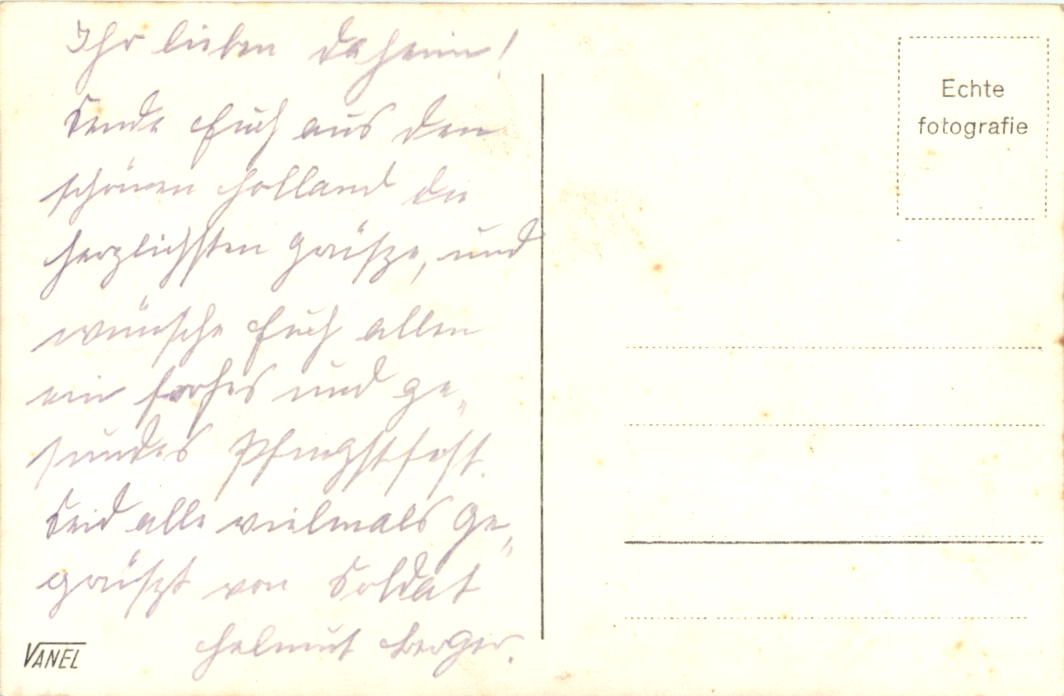 Ihr lieben daheim!
Sende Euch aus den
schönen Holland die
herzlichsten Grüße, und
wünsche Euch allen
ein frohes und ge„
sundes Pfingstfest.
Seid alle vielmals Ge„
grüßt von Soldat
Helmut Berger.
VANEL
Echte
fotografie